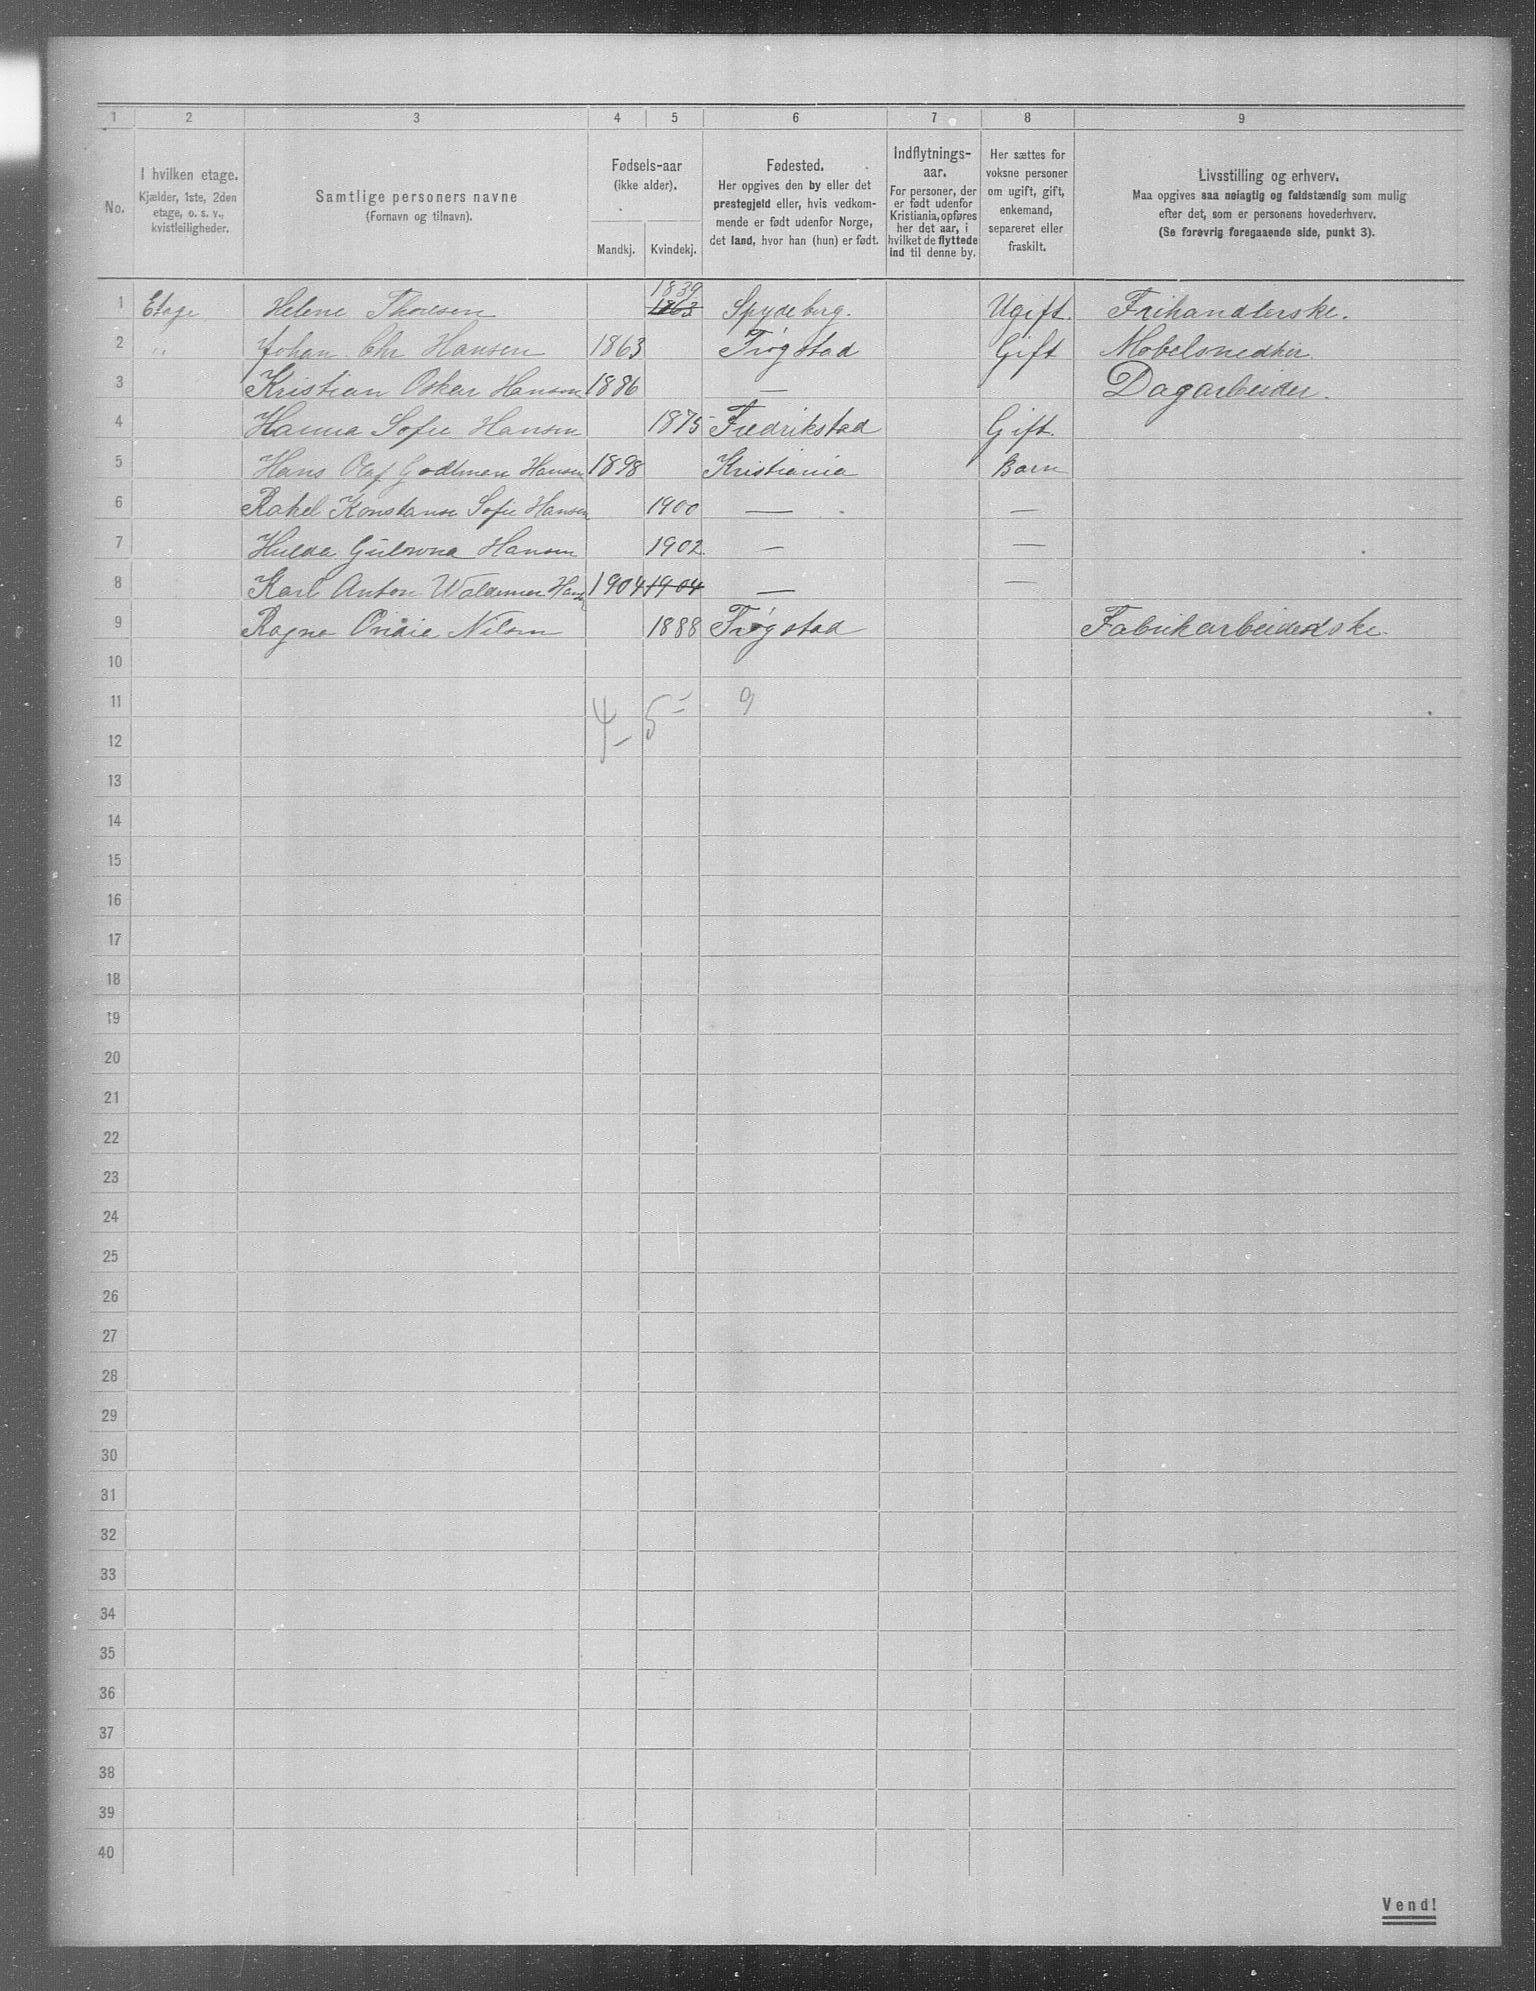 1 2 3 4 5 6 7 8 9
No.
I hvilken etage.
Kjælder, 1ste, 2den
etage, o. s. v.,
kvistleiligheder.
Samtlige personers navne
(Fornavn og tilnavn).
Fødsels-aar
(ikke alder).
Mandkj. Kvindekj.
Fødested.
Her opgives den by eller det
prestegjeld eller, hvis vedkom-
mende er født udenfor Norge,
det land, hvor han (hun) er født.
Indflytnings-
aar.
For personer, der
er født udenfor
Kristiania, opføres
her det aar, i
hvilket de flyttede
ind til denne by.
Her sættes for
voksne personer
om ugift, gift,
enkemand,
separeret eller
fraskilt.
Livsstilling og erhverv.
Maa opgives saa nøiagtig og fuldstændig som mulig
efter det, som er personens hovederhverv.
(Se forøvrig foregaaende side, punkt 3).
1839
1 Etage Helene Thoresen 1863 Spydeberg. Ugift. Frihandlerske.
2 " Johan Chr Hansen 1863 Trøgstad Gift Møbelsnedker
3 Kristian Oskar Hansen 1886 — Dagarbeider.
4 Hanna Sofie Hansen 1875 Fredrikstad Gift.
5 Hans Olaf Godtman Hansen 1898 Kristiania Barn
6 Rakel Konstanse Sofie Hansen 1900 — —
7 Hulda Hansen 1902 — —
8 Karl Anton Waldemar Hans 1904 1904 — —
9 Ragna Nilsen 1888 Trøgstad Fabrikarbeiderske.
10
11 4 - 5 - 9
12
13
14
15
16
17
18
19
20
21
22
23
24
25
26
27
28
29
30
31
32
33
34
35
36
37
38
39
40
Vend!